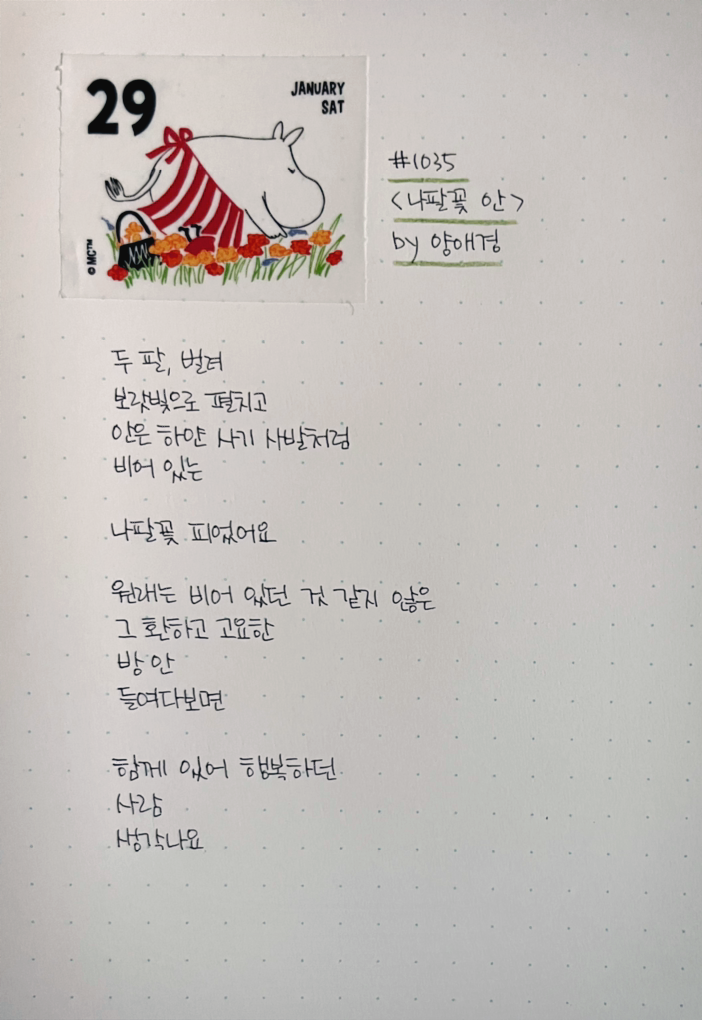 29
JANUARY
SAT
© MC™
#1035
<나팔꽃 안>
by 양애경
두 팔, 벌려
보랏빛으로 펼치고
안은 하얀 사기 사발처럼
비어 있는
나팔꽃 피었어요
원래는 비어 있던 것 같지 않은
그 환하고 고요한
방 안
들여다보면
함께 있어 행복하던
사람
생각나요